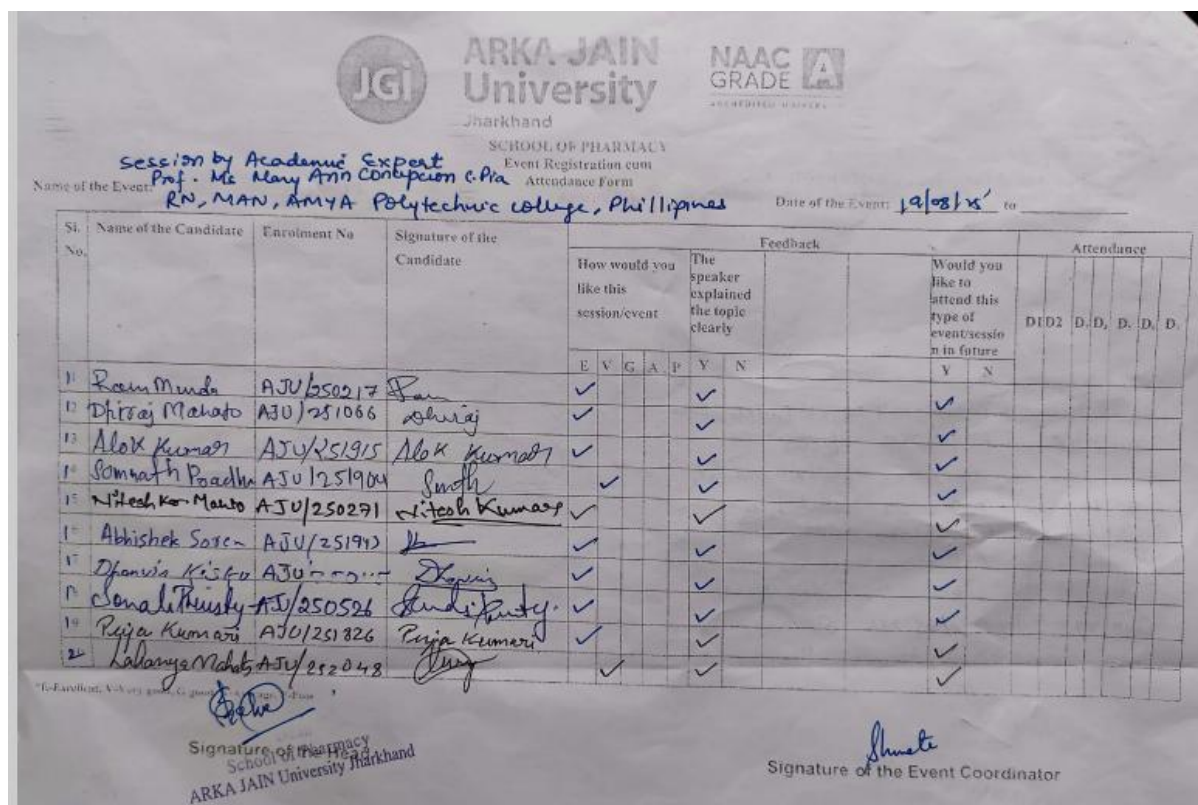 JGi
ARKA JAIN
University
Jharkhand
NAAC
GRADE A
SCHOOL OF PHARMACY
Event Registration cum
Attendance Form
Name of the Event: Session by Academic Expert
Prof. Ms Mary Ann C.Pia
RN, MAN, AMYA Polytechnic college, Phillipines
Date of the Event: 19/08/25 to
Sl. No. Name of the Candidate Enrolment No Signature of the Candidate Feedback Attendance
How would you like this session/event
The speaker explained the topic clearly
Would you like to attend this type of event/sessio n in future
D1 D2 D. D. D. D. D.
E V G A P Y N Y N
11 Ram Munda AJU/250217 Ram
12 Dhiraj Mahato AJU/251066 Dhiraj
13 Alok Kumar AJU/251915 Alok Kumar
Somnath Pradhan AJU/251904
15 Nitesh Kr. Mahto AJU/250271 Nitesh Kumar
Abhishek Soren
17 Kisku
Sonali AJU/250526
19 Puja Kumari AJU/251326 Puja Kumari
Mahato AJU/252048
*E-Excellent, V-Very good, G-good,
Signature of the Head
School of Pharmacy
ARKA JAIN University Jharkhand
Signature of the Event Coordinator